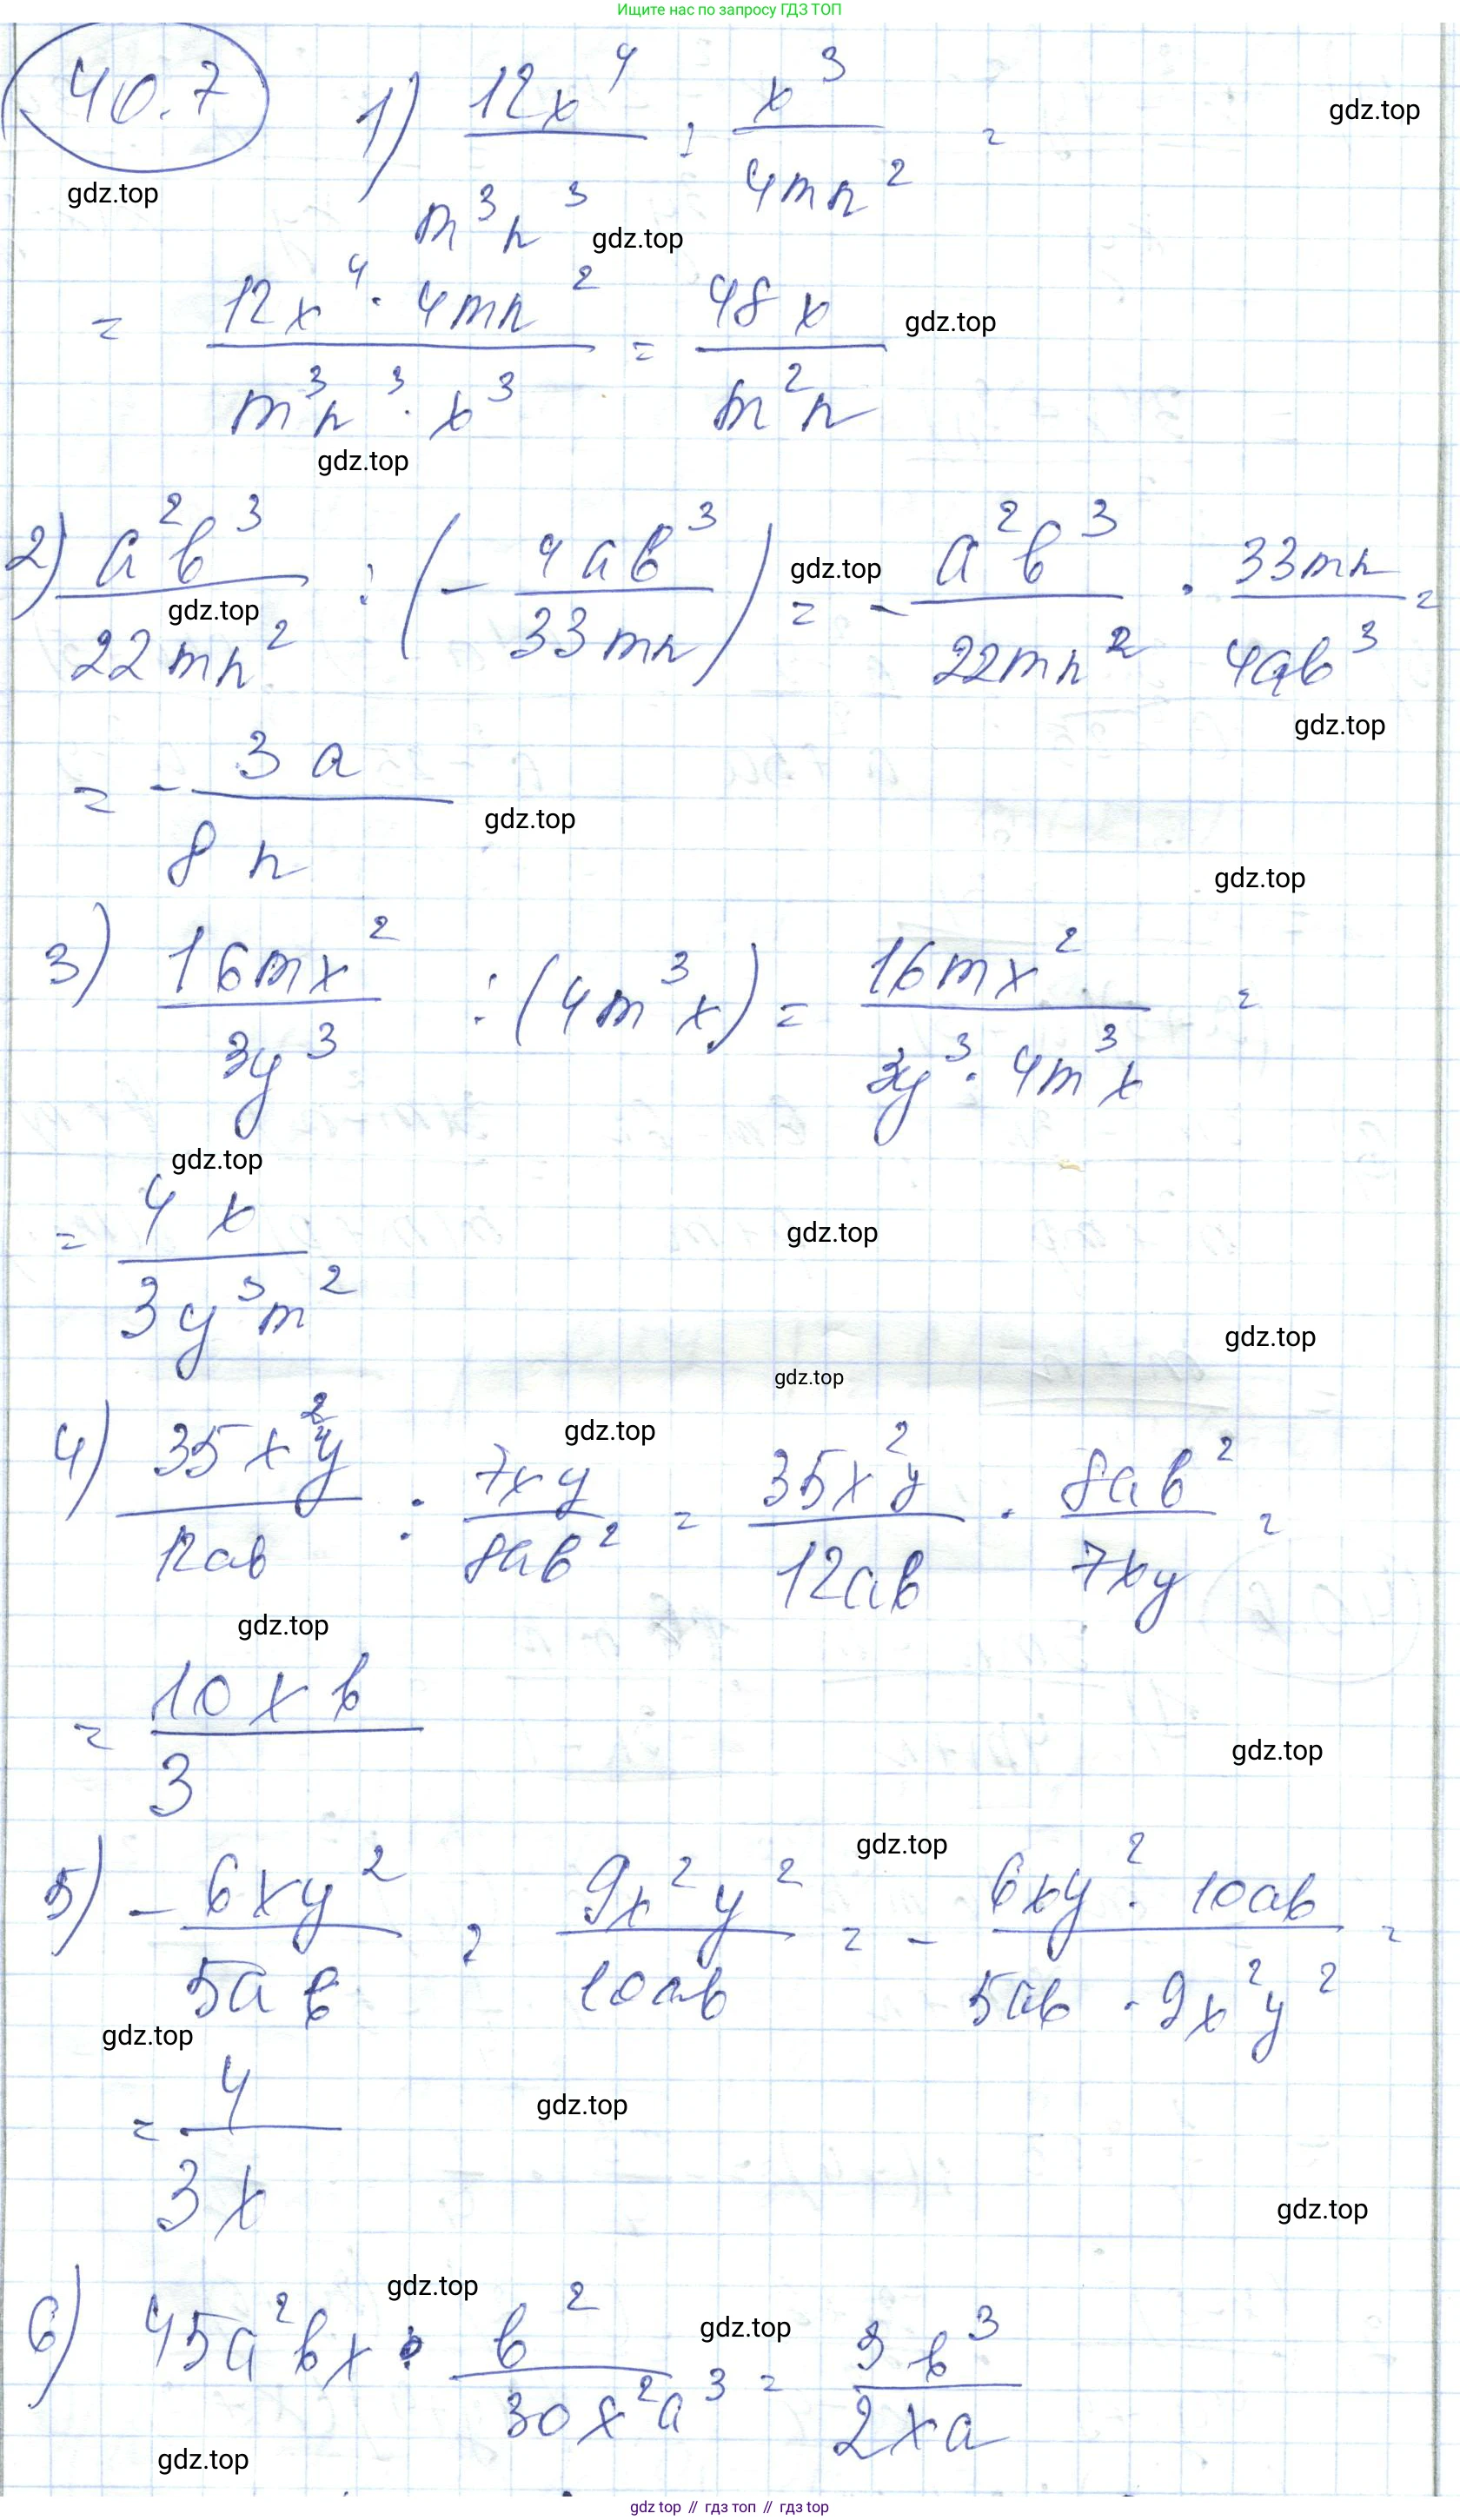 Ищите нас по запросу ГДЗ ТОП
40.7 1) 12x⁴/m³n³ : x³/4mn² =
gdz.top
gdz.top
gdz.top
= 12x⁴ · 4mn²/m³n³ · x³ = 48x/m²n
gdz.top
gdz.top
2) a²b³/22mn² : (- 4ab³/33mn) = - a²b³/22mn² · 33mn/4ab³ =
gdz.top
gdz.top
gdz.top
= - 3a/8n
gdz.top
gdz.top
3) 16mx²/3y³ : (4m³x) = 16mx²/3y³ · 4m³x =
gdz.top
= 4x/3y³m²
gdz.top
gdz.top
gdz.top
4) 35x²y/12ab : 7xy/8ab² = 35x²y/12ab · 8ab²/7xy =
gdz.top
gdz.top
= 10xb/3
gdz.top
5) - 6xy²/5ab : 9x²y²/10ab = - 6xy² · 10ab/5ab · 9x²y² =
gdz.top
gdz.top
= - 4/3x
gdz.top
gdz.top
6) 45a²bx · b²/30x²a³ = 3b³/2xa
gdz.top
gdz.top
gdz.top
gdz top // гдз топ // гдз top